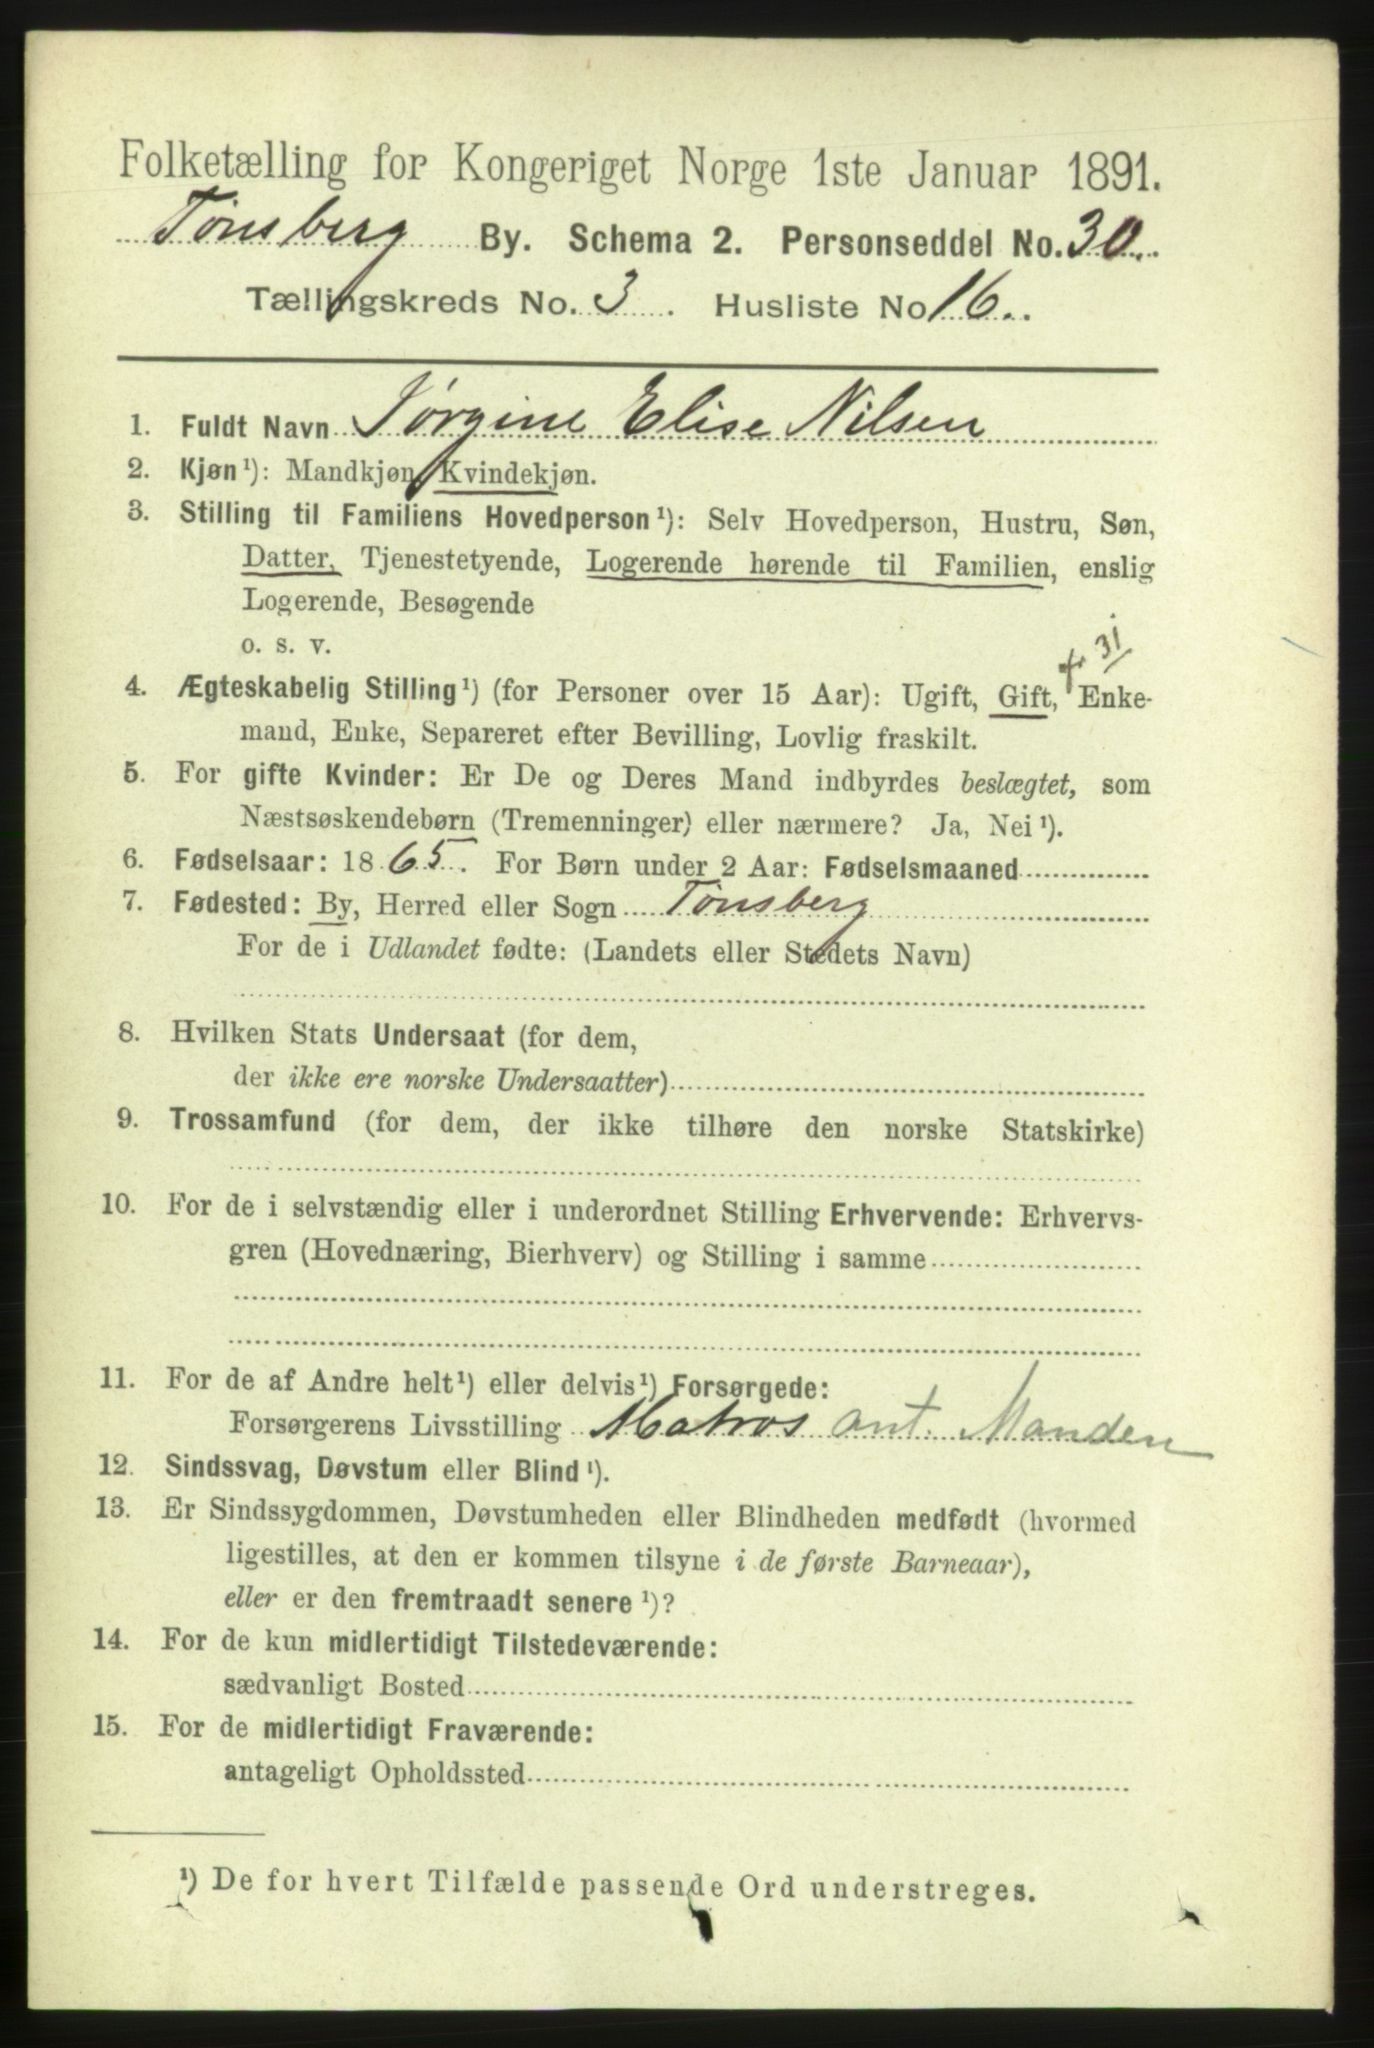 Folketælling for Kongeriget Norge 1ste Januar 1891.
Tønsberg By. Schema 2. Personseddel No. 30
Tællingskreds No. 3. Husliste No 16
1. Fuldt Navn Jørgine Elise Nilsen
2. Kjøn¹): Mandkjøn, Kvindekjøn.
3. Stilling til Familiens Hovedperson¹): Selv Hovedperson, Hustru, Søn,
Datter, Tjenestetyende, Logerende hørende til Familien, enslig
Logerende, Besøgende
o. s. v.
31
4. Ægteskabelig Stilling¹) (for Personer over 15 Aar): Ugift, Gift, Enke-
mand, Enke, Separeret efter Bevilling, Lovlig fraskilt.
5. For gifte Kvinder: Er De og Deres Mand indbyrdes beslægtet, som
Næstsøskendebørn (Tremenninger) eller nærmere? Ja, Nei¹).
6. Fødselsaar: 1865. For Børn under 2 Aar: Fødselsmaaned
7. Fødested: By, Herred eller Sogn Tønsberg
For de i Udlandet fødte: (Landets eller Stedets Navn)
8. Hvilken Stats Undersaat (for dem,
der ikke ere norske Undersaatter)
9. Trossamfund (for dem, der ikke tilhøre den norske Statskirke)
10. For de i selvstændig eller i underordnet Stilling Erhvervende: Erhvervs-
gren (Hovednæring, Bierhverv) og Stilling i samme
11. For de af Andre helt¹) eller delvis¹) Forsørgede:
Forsørgerens Livsstilling Matros ant. Manden
12. Sindssvag, Døvstum eller Blind¹).
13. Er Sindssygdommen, Døvstumheden eller Blindheden medfødt (hvormed
ligestilles, at den er kommen tilsyne i de første Barneaar),
eller er den fremtraadt senere¹)?
14. For de kun midlertidigt Tilstedeværende:
sædvanligt Bosted
15. For de midlertidigt Fraværende:
antageligt Opholdssted
¹) De for hvert Tilfælde passende Ord understreges.